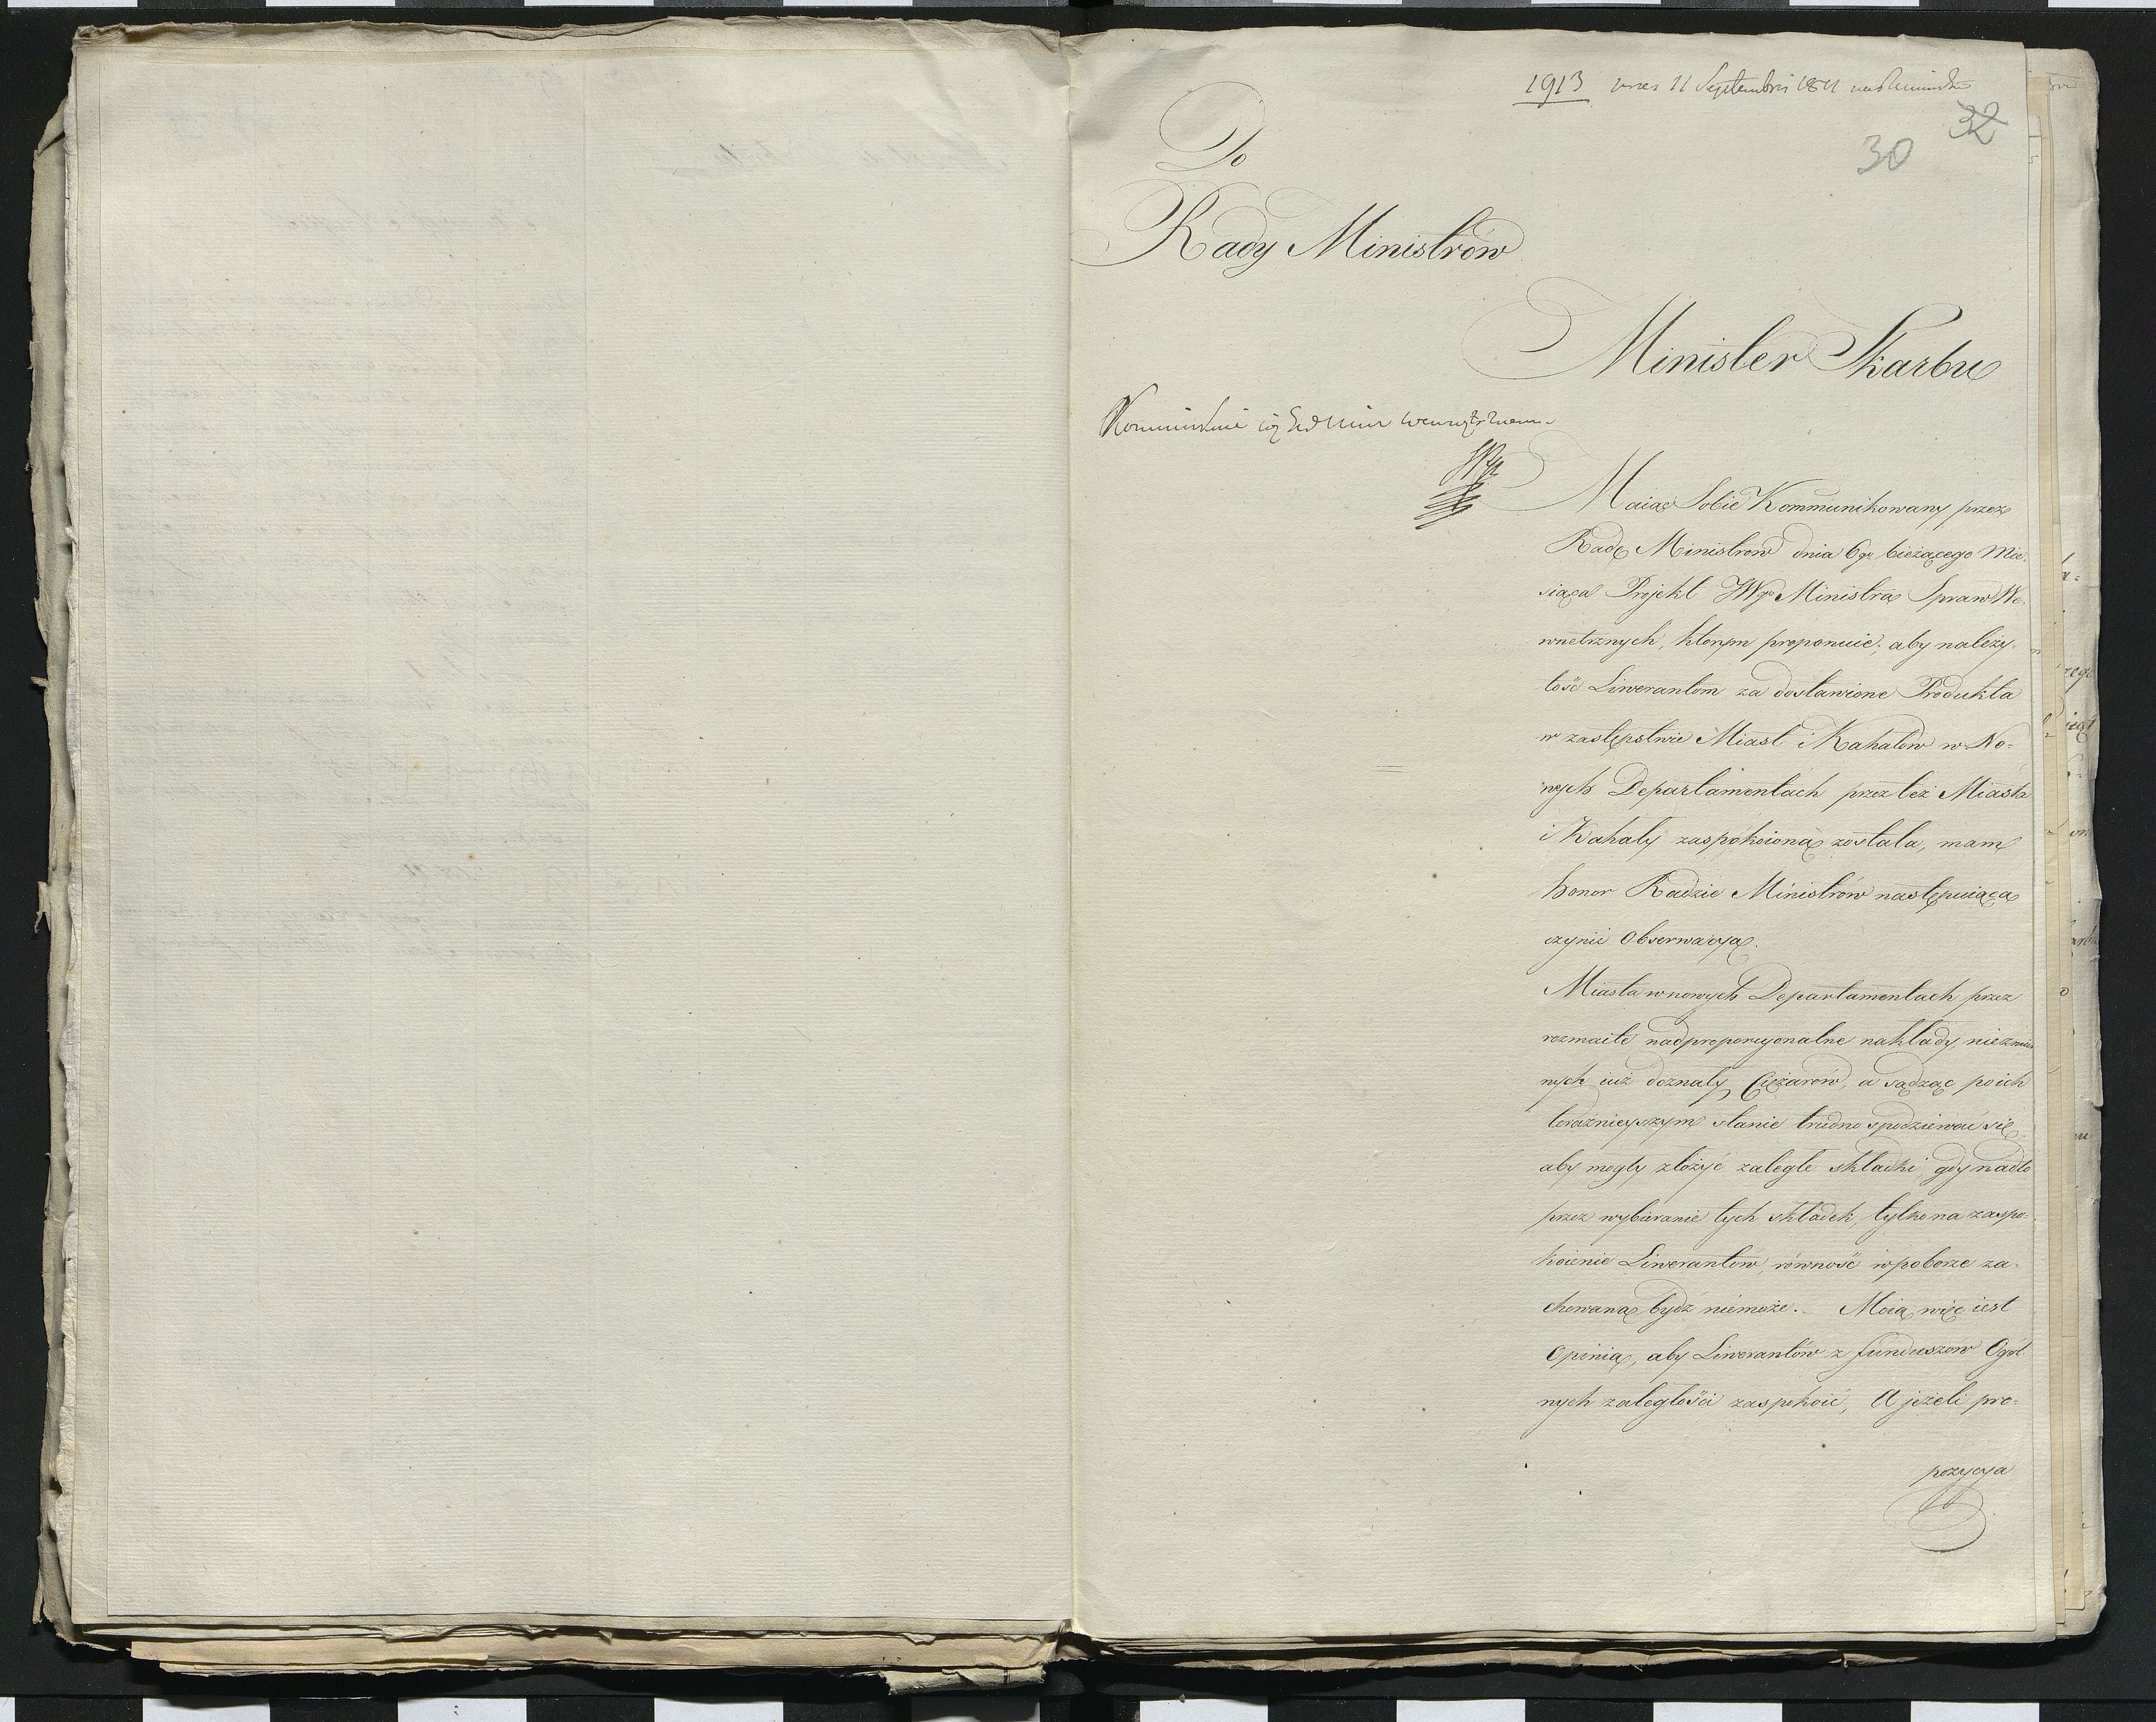 1913 11 Septembris 1811
32
30
Do
Rady Ministrów
Minister Skarbu
Maiąc Sobie Kommunikowany przez
Radę Ministrow dnia 6go bieżącego Mie-
siąca Projekt JWgo Ministra Spraw We-
wnetrznych, ktorym proponuie, aby należy-
tość Liwerantom za dostawione Produkta
w zastępstwie Miast i Kahałow w No-
wych Departamentach przez też Miasta
i Kahały zaspokoioną została, mam
honor Radzie Ministrów następuiącą
czynić Obserwacyą.
Miasta w nowych Departamentach przez
rozmaite nadproporcyonalne nakłady, niezmier
nych iuż doznały Ciężarów, a sądząc po ich
teraźnieyszym stanie trudno spodziewać się
aby mogły złożyć zaległe składki, gdy nadto
przez wybieranie tych składek, tylko na zaspo-
koienie Liwerantów, równość w poborze za-
chowaną bydź niemoże. – Moią więc iest
Opinią, aby Liwerantów z funduszów Ogól
nych zaległości zaspokoić, A jeżeli pro-
pozycya